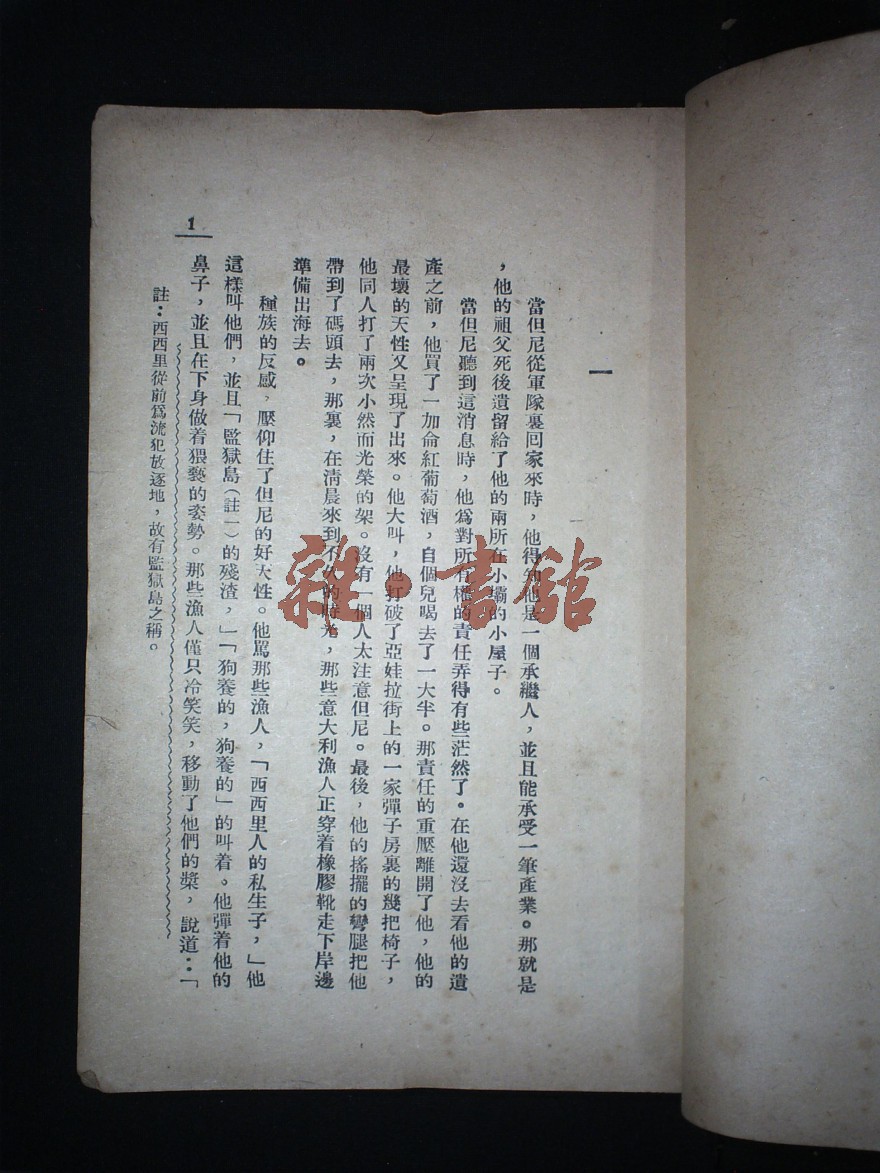 一
當但尼從軍隊裏回家來時，他得知他是一個承繼人，並且能承受一筆產業。那就是
，他的祖父死後遺留給了他的兩所在小壩的小屋子。
當但尼聽到這消息時，他爲對所有權的責任弄得有些茫然了。在他還沒去看他的遺
產之前，他買了一加侖紅葡萄酒，自個兒喝去了一大半。那責任的重壓離開了他，他的
最壞的天性又呈現了出來。他大叫，他打破了亞娃拉街上的一家彈子房裏的幾把椅子，
他同人打了兩次小然而光榮的架。沒有一個人太注意但尼。最後，他的搖擺的彎腿把他
帶到了碼頭去，那裏，在淸晨來到不久的時光，那些意大利漁人正穿着橡膠靴走下岸邊
準備出海去。
種族的反感，壓仰住了但尼的好天性。他罵那些漁人，「西西里人的私生子，」他
這樣叫他們，並且「監獄島（註一）的殘渣，」「狗養的，狗養的」的叫着。他彈着他的
鼻子，並且在下身做着猥褻的姿勢。那些漁人僅只冷笑笑，移動了他們的槳，說道：「
註：西西里從前爲流犯放逐地，故有監獄島之稱。
1
雜·書館